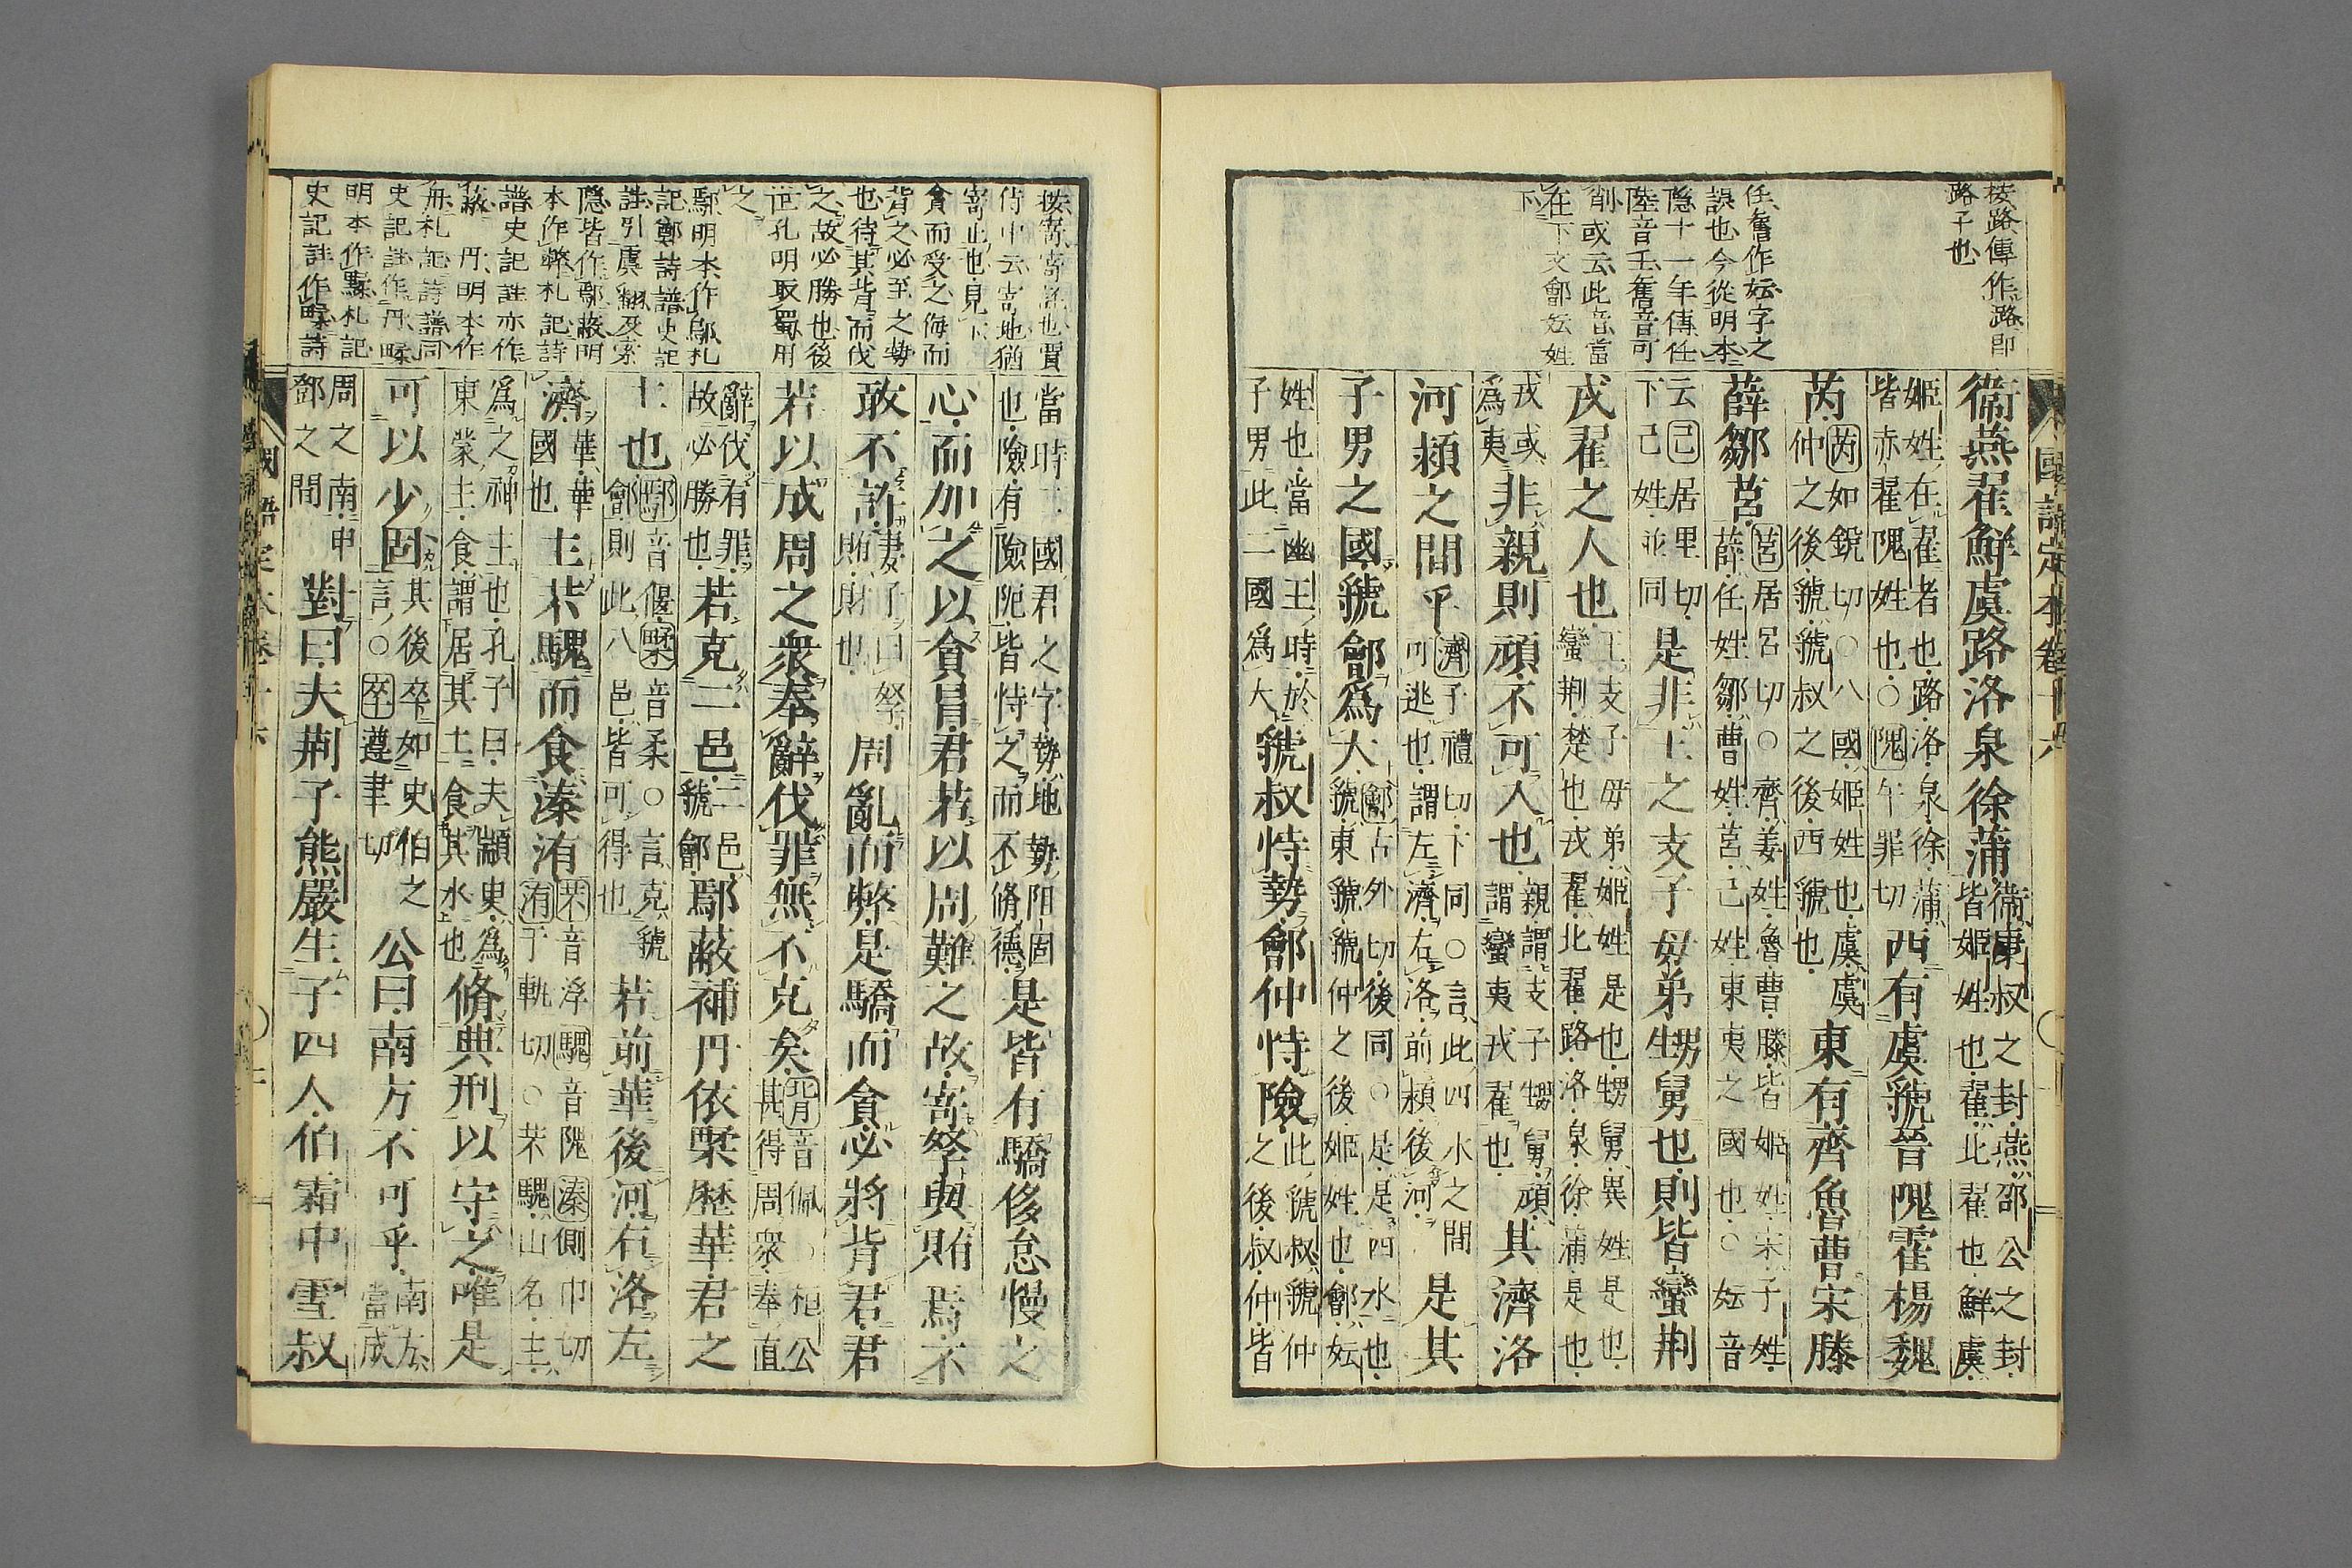 國語定本卷十六
桉路傳作潞卽
路子也
任舊作妘字之
誤也今從明本
隱十一年傳任
陸音壬舊音可
削或云此音當
在下文鄶妘姓
下
衞燕翟鮮虞路洛泉徐蒲衞康叔之封燕邵公之封皆姬姓也翟北翟也鮮虞
姬姓在翟者也路洛泉徐蒲皆赤翟隗姓也○隗午罪切西有虞虢晉隗霍楊魏
芮芮如銳切○八國姬姓也虞虞仲之後虢虢叔之後西虢也東有齊魯曹宋滕
薛鄒莒莒居呂切○齊姜姓魯曹滕皆姬姓宋子姓薛任姓鄒曹姓莒己姓東夷之國也○妘音
云己居里切下己姓並同是非王之支子母弟甥舅也則皆蠻荆
戎翟之人也王支子母弟姬姓是也甥舅異姓是也蠻荆楚也戎翟北翟路洛泉徐蒲是也
戎或爲夷非親則頑不可入也親謂支子甥舅頑謂蠻夷戎翟也其濟洛
河潁之間乎濟子禮切下同○言此四水之間可逃也謂左濟右洛前潁後河是其
子男之國虢鄶爲大鄶古外切後同○是是四水也虢東虢虢仲之後姬姓也鄶妘
姓也當幽王時於子男此二國爲大虢叔恃勢鄶仲恃險此虢叔虢仲之後叔仲皆
桉寄寄託也賈
侍中云寄地猶
寄止也見下
貪而受之侮而
背之必至之勢
也待其背而伐
之故必勝也後
世孔明取蜀用
之
鄢明本作鄔札
記鄭詩譜史記
註引虞翻及索
隱皆作鄢蔽明
本作弊札記詩
譜史記註亦作
蔽丹明本作
舟札記詩譜同
史記註作丹
明本作騥札記
史記註作
當時二國君之字勢地勢阻固也險有險阨皆恃之而不脩德是皆有驕侈怠慢之
心而加之以貪冒君若以周難之故寄孥與賄焉不
敢不許妻子曰孥賄財也周亂而弊是驕而貪必將背君君
若以成周之衆奉辭伐罪無不克矣背音佩○桓公甚得周衆奉直
辭伐有罪故必勝也若克二邑二邑虢鄶鄢蔽補丹依㽥歷華君之
土也鄢音偃㽥音柔○言克虢鄶則此八邑皆可得也若前華後河右洛左
濟華華國也主芣騩而食溱洧芣音浮騩音隗溱側巾切洧于軌切○芣騩山名主
爲之神主也孔子曰夫顓臾爲東蒙主食謂居其土食其水也脩典刑以守之唯是
可以少固其後卒如史伯之言○卒遵聿切公曰南方不可乎南方當成
周之南申鄧之間對曰夫荆子熊嚴生子四人伯霜中雪叔
國語定本卷十六